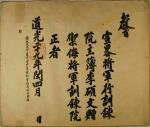 教旨
宣畧將軍行訓鍊
院主簿李碩文贈
禦侮將軍訓鍊院
正者
道光二十九年閏四月 日